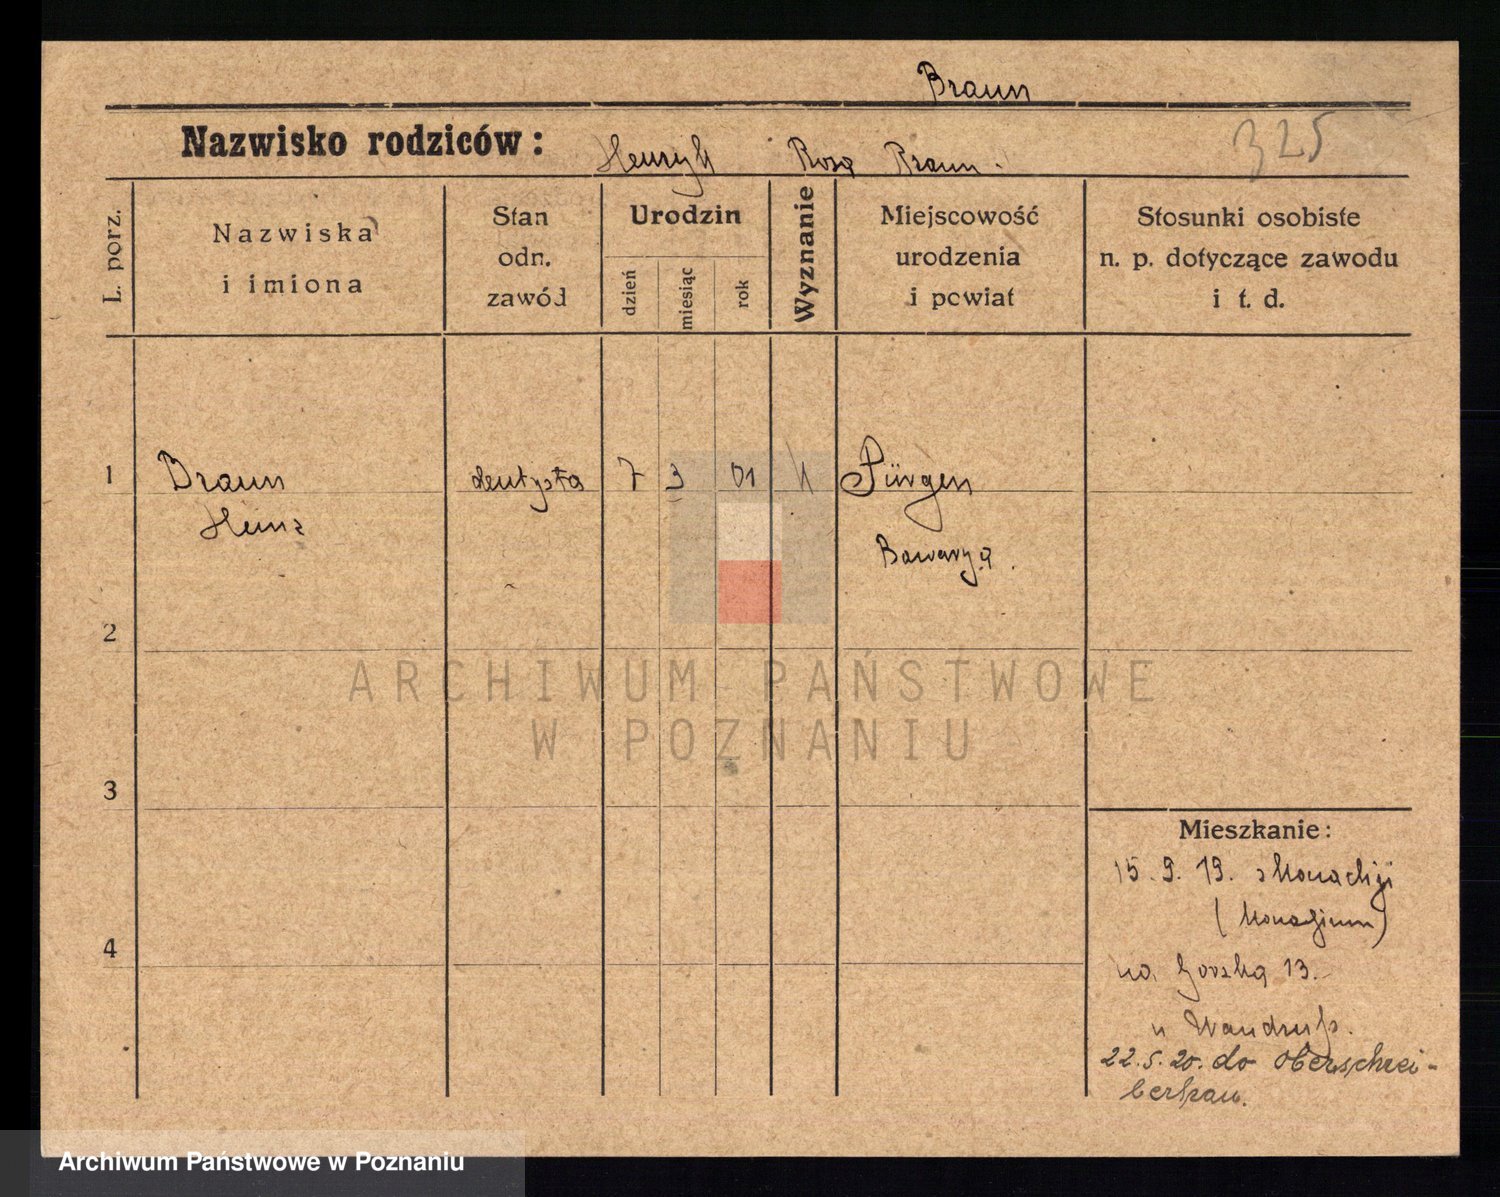 Braun
325
Nazwisko rodziców: Henryk Rosa Braun.
L. porz.
Nazwiska
i imiona
Stan
odn.
zawód
Urodzin
dzień
miesiąc
rok
Wyznanie
Miejscowość
urodzenia
i powiat
Stosunki osobiste
n. p. dotyczące zawodu
i t. d.
1 Braun dentysta 7 3 01 k Pürgen
Heinz
Bawarya.
2
3
4
Mieszkanie:
15.9.19. z Monachji
na Gorską 13.
u
22.5.20. do Oberschrei-
berhau.
ARCHIWUM PAŃSTWOWE
W POZNANIU
Archiwum Państwowe w Poznaniu